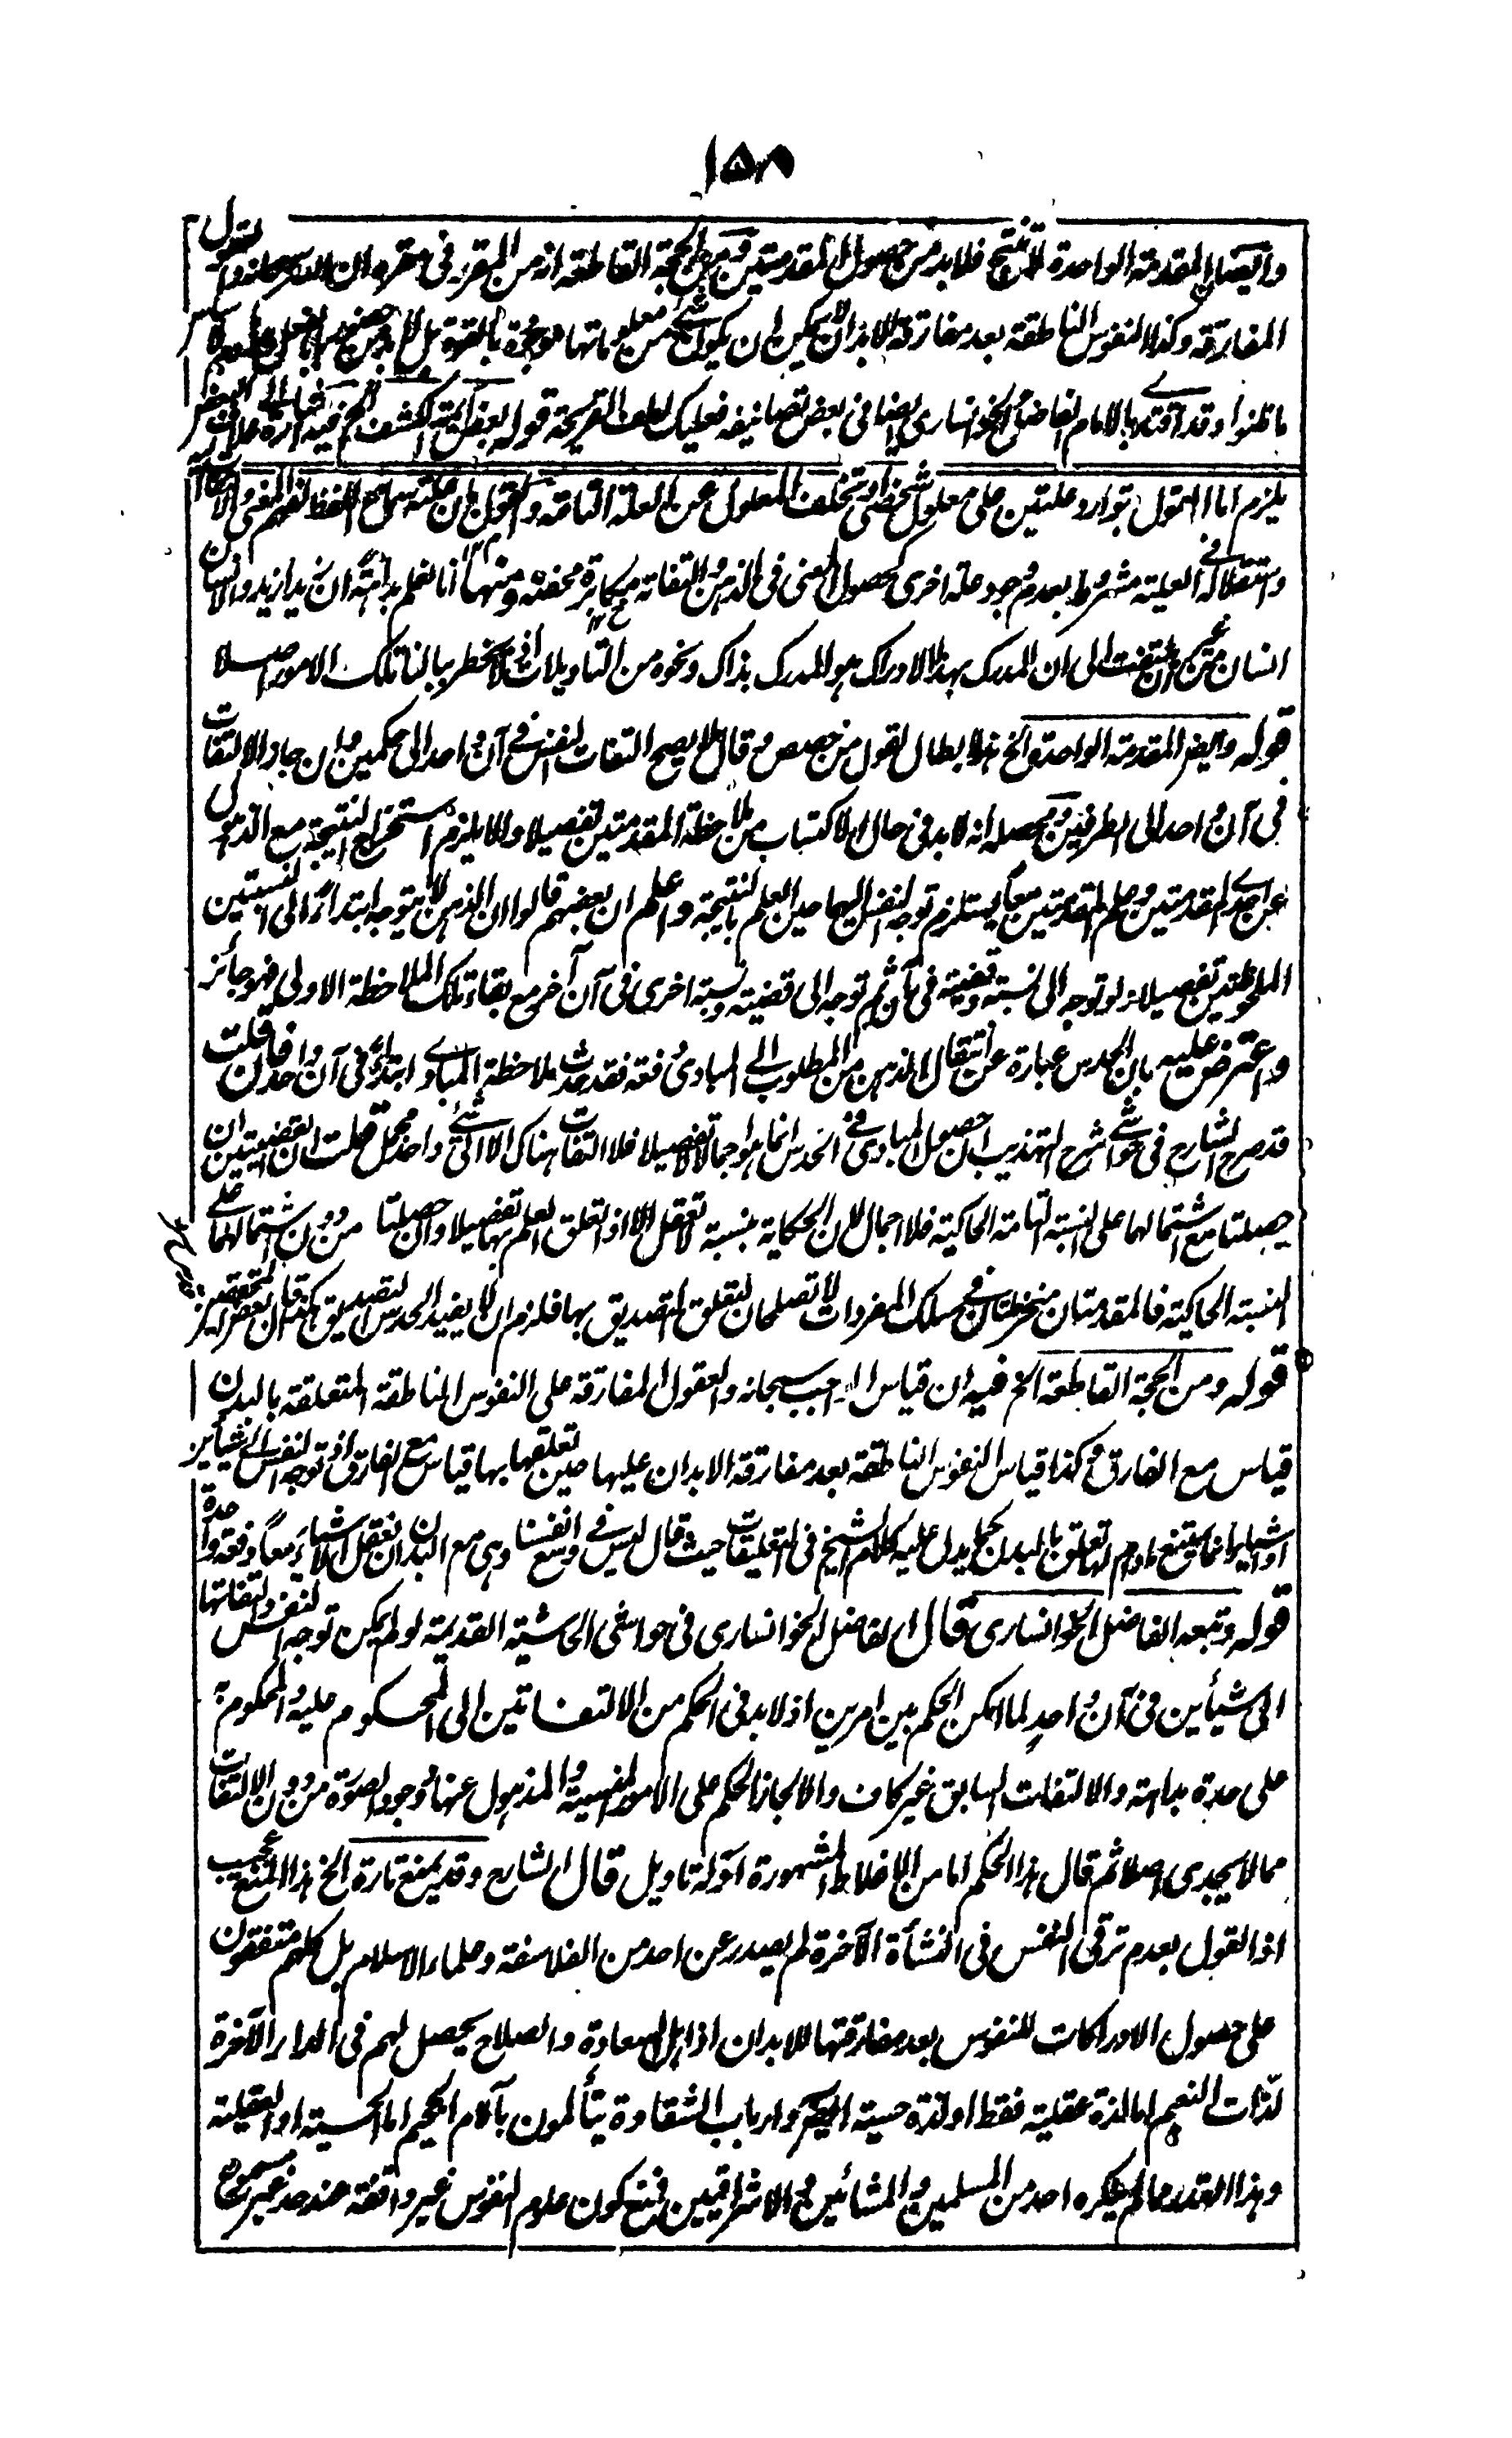 ١٥٨
وايضا المقدمة الواحدة لا تنتج فلا بد من حصول المقدمتين ومن الحجة القاطعة انه من المقرر فى مقره ان الله سبحانه والعقول
المفارقة وكذا النفوس الناطقة بعد مفارقة الابدان لا يمكن ان يكون شئ من معلوماتها موجودة بالقوة بل
ما قلنوا وقد اقتدى بالامام الفاضل الخوانسارى ايضا فى بعض تصانيفه فعليك بلطف القريحة قوله بعض ائمة الكشف الخ فيه اشارة
يلزم اما القول بتوارد علتين على معلول شخصى او تخلف المعلول عن العلة التامة والقول بان علته سماع اللفظ لفهم المعنى والالتفات
واستقلاله فى العلية مشروط بعدم وجود علة اخرى لحصول المعنى فى الذهن والتفاته مكابرة محضة ومنها انا نعلم بداهة ان زيدا زيد والانسان
انسان من غير ان نلتفت الى ان المدرك بهذا الادراك هو المدرك بذاك ونحوه من التاويلات اذ لا تخطر ببالنا تلك الامور اصلا
قوله وايضا المقدمة الواحدة الخ هذا ابطال لقول من خصص وقال لا يصح التفات النفس فى آن واحد الى حكمين وان جاز الالتفات
فى آن واحد الى الطرفين ومحصله انه لا بد فى حال الاكتساب من ملاحظة المقدمتين تفصيلا والا يلزم استخراج النتيجة مع الذهول
عن احدى المقدمتين وعلم المقدمتين معا يستلزم توجه النفس اليهما حين العلم بالنتيجة واعلم ان بعضهم قالوا ان الذهن لا يتوجه ابتداءً الى النسبتين
الملحوظتين تفصيلا ولو توجه الى نسبة وقضية فى آن ثم توجه الى قضية ونسبة اخرى فى آن آخر مع بقاء تلك الملاحظة الاولى فهو جائز
واعترض عليه بان الحدس عبارة عن انتقال الذهن من المطلوب الى المبادى دفعة فقد حدث ملاحظة المبادى ابتداءً فى آن واحد فان قلت
قد صرح الشارح فى حواشى شرح التهذيب ان حصول المبادى فى الحدس انما هو اجمالا لا تفصيلا فلا التفات هناك الا الى شئ واحد مجمل قلت ان القضيتين ان
حصلتا مع اشتمالهما على النسبة التامة الحاكية فلا اجمال لان الحكاية بنسبة لا تعقل الا اذا تعلق العلم بها تفصيلا وان حصلتا من دون اشتمالهما على
النسبة الحاكية فالمقدمتان منخرطتان فى سلك المفردات لا تصلحان لتعلق التصديق بها فلزم ان لا يفيد الحدس التصديق هكذا قال بعض المحققين
قوله ومن الحجة القاطعة الخ فيه ان قياس الواجب سبحانه والعقول المفارقة على النفوس الناطقة المتعلقة بالبدن
قياس مع الفارق وكذا قياس النفوس الناطقة بعد مفارقة الابدان عليها حين تعلقها بها قياس مع الفارق اذ توجه النفس الى شيأين
او اشياء انما يمتنع ما دام لها تعلق بالبدن كما يدل عليه كلام الشيخ فى التعليقات حيث قال ليس فى وسع انفسنا وهى مع البدن ان نعقل الاشياء معاً دفعة واحدة
قوله وتبعه الفاضل الخوانسارى قال الفاضل الخوانسارى فى حواشى الحاشية القديمة لو لم يكن توجه النفس والتفاتها
الى شيأين فى آن واحدٍ لما امكن الحكم بين امرين اذ لا بد فى الحكم من الالتفاتين الى المحكوم عليه والمحكوم به
على حدة بداهة والالتفات السابق غير كاف والا لجاز الحكم على الامور المنسية والمذهول عنها ووجود الصورة من دون الالتفات
مما لا يجدى اصلا ثم قال هذا الحكم اما من الاغلاط المشهورة او له تاويل قال الشارح وقد يمنع تارة الخ هذا المنع عجيب
اذ القول بعدم ترقى النفس فى النشأة الآخرة لم يصدر عن احد من الفلاسفة وعلماء الاسلام بل كلهم متفقون
على حصول الادراكات للنفوس بعد مفارقتها للابدان اذ اهل السعادة والصلاح يحصل لهم فى الدار الآخرة
لذات النعيم اما لذة عقلية فقط او لذة حسية ايضا وارباب الشقاوة يتألمون بآلام الجحيم اما الحسية او العقلية
وهذا القدر مما لم ينكره احد من المسلمين والمشائين والاشراقيين فمنع كون علوم النفوس غير واقفة عند حد غير مسموع